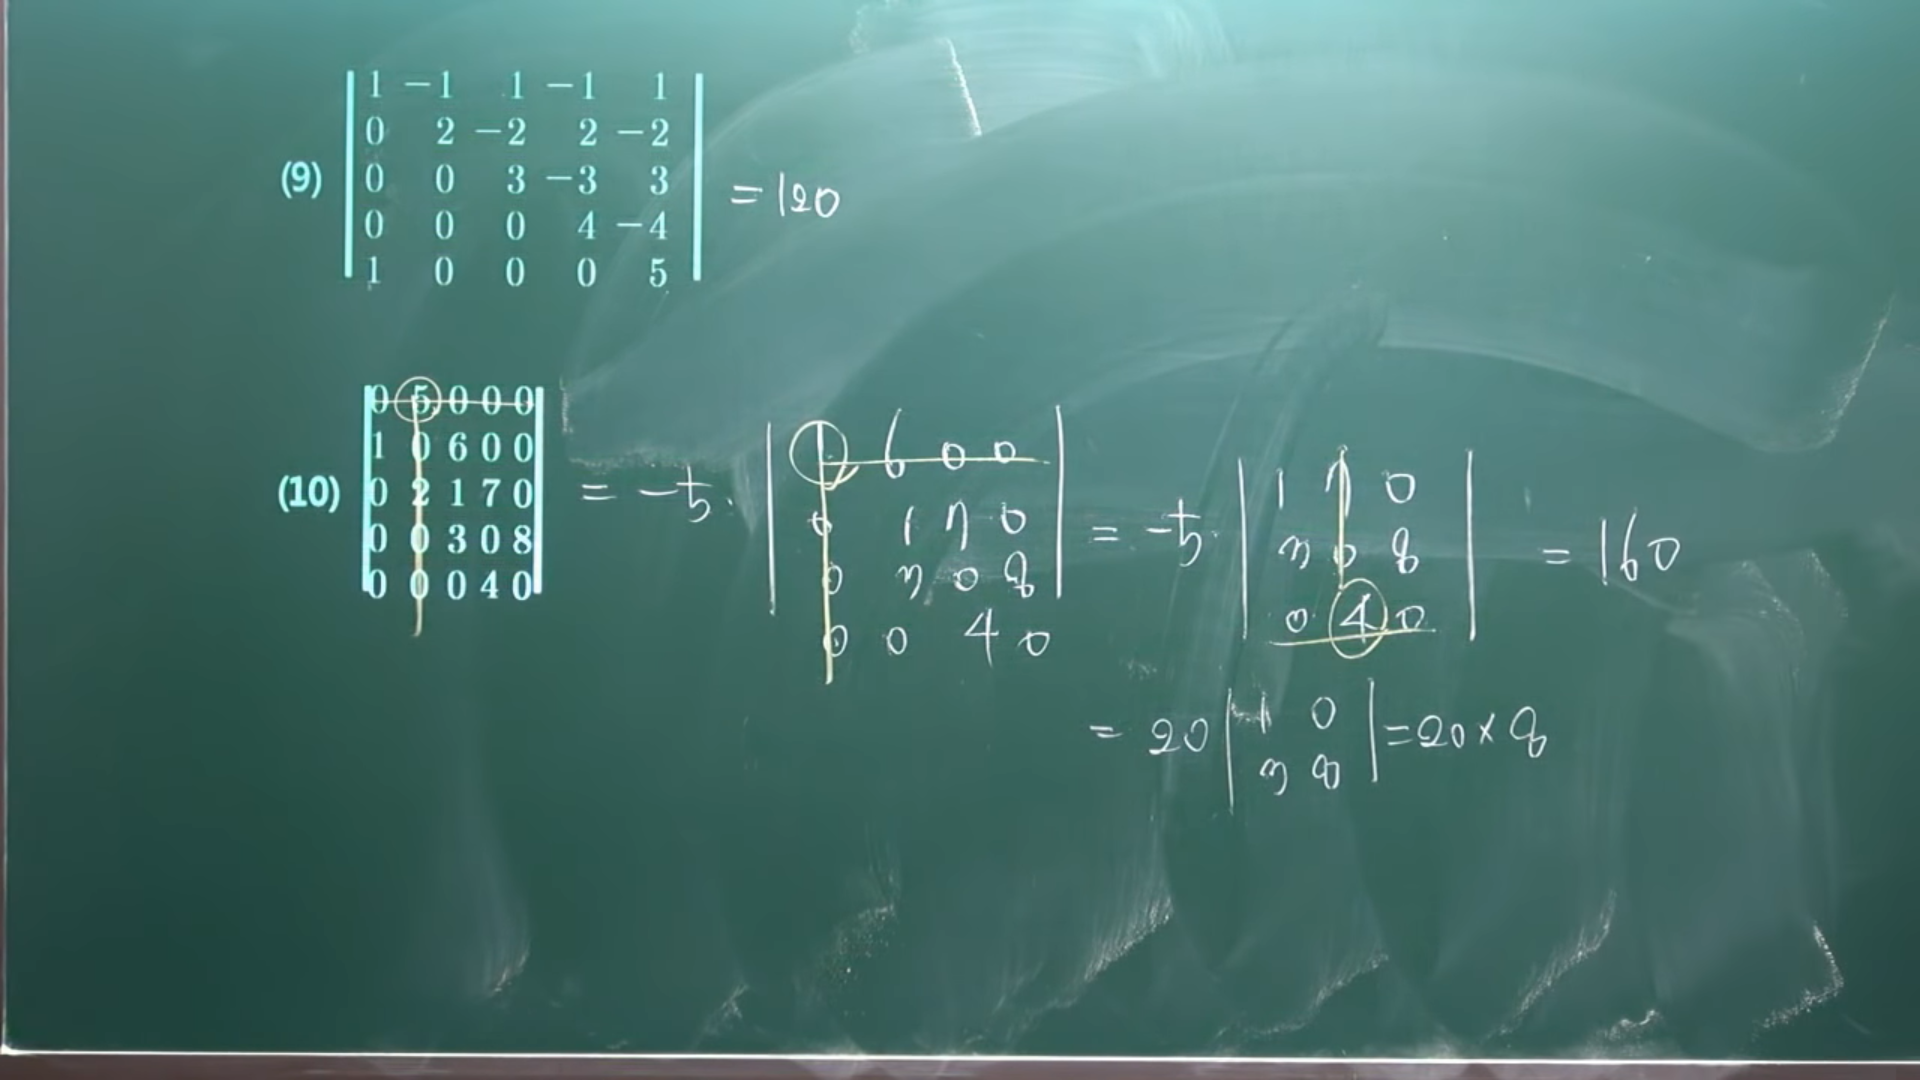 1 −1 1 −1 1
0 2 −2 2 −2
(9) 0 0 3 −3 3 = 120
0 0 0 4 −4
1 0 0 0 5
0 5 0 0 0
1 0 6 0 0
(10) 0 2 1 7 0
0 0 3 0 8
0 0 0 4 0
= −5 ·
1 6 0 0
0 1 7 0
0 3 0 8
0 0 4 0
= −5 ·
1 7 0
3 0 8
0 4 0
= 160
= 20 | 1 0 | = 20 × 8
3 8